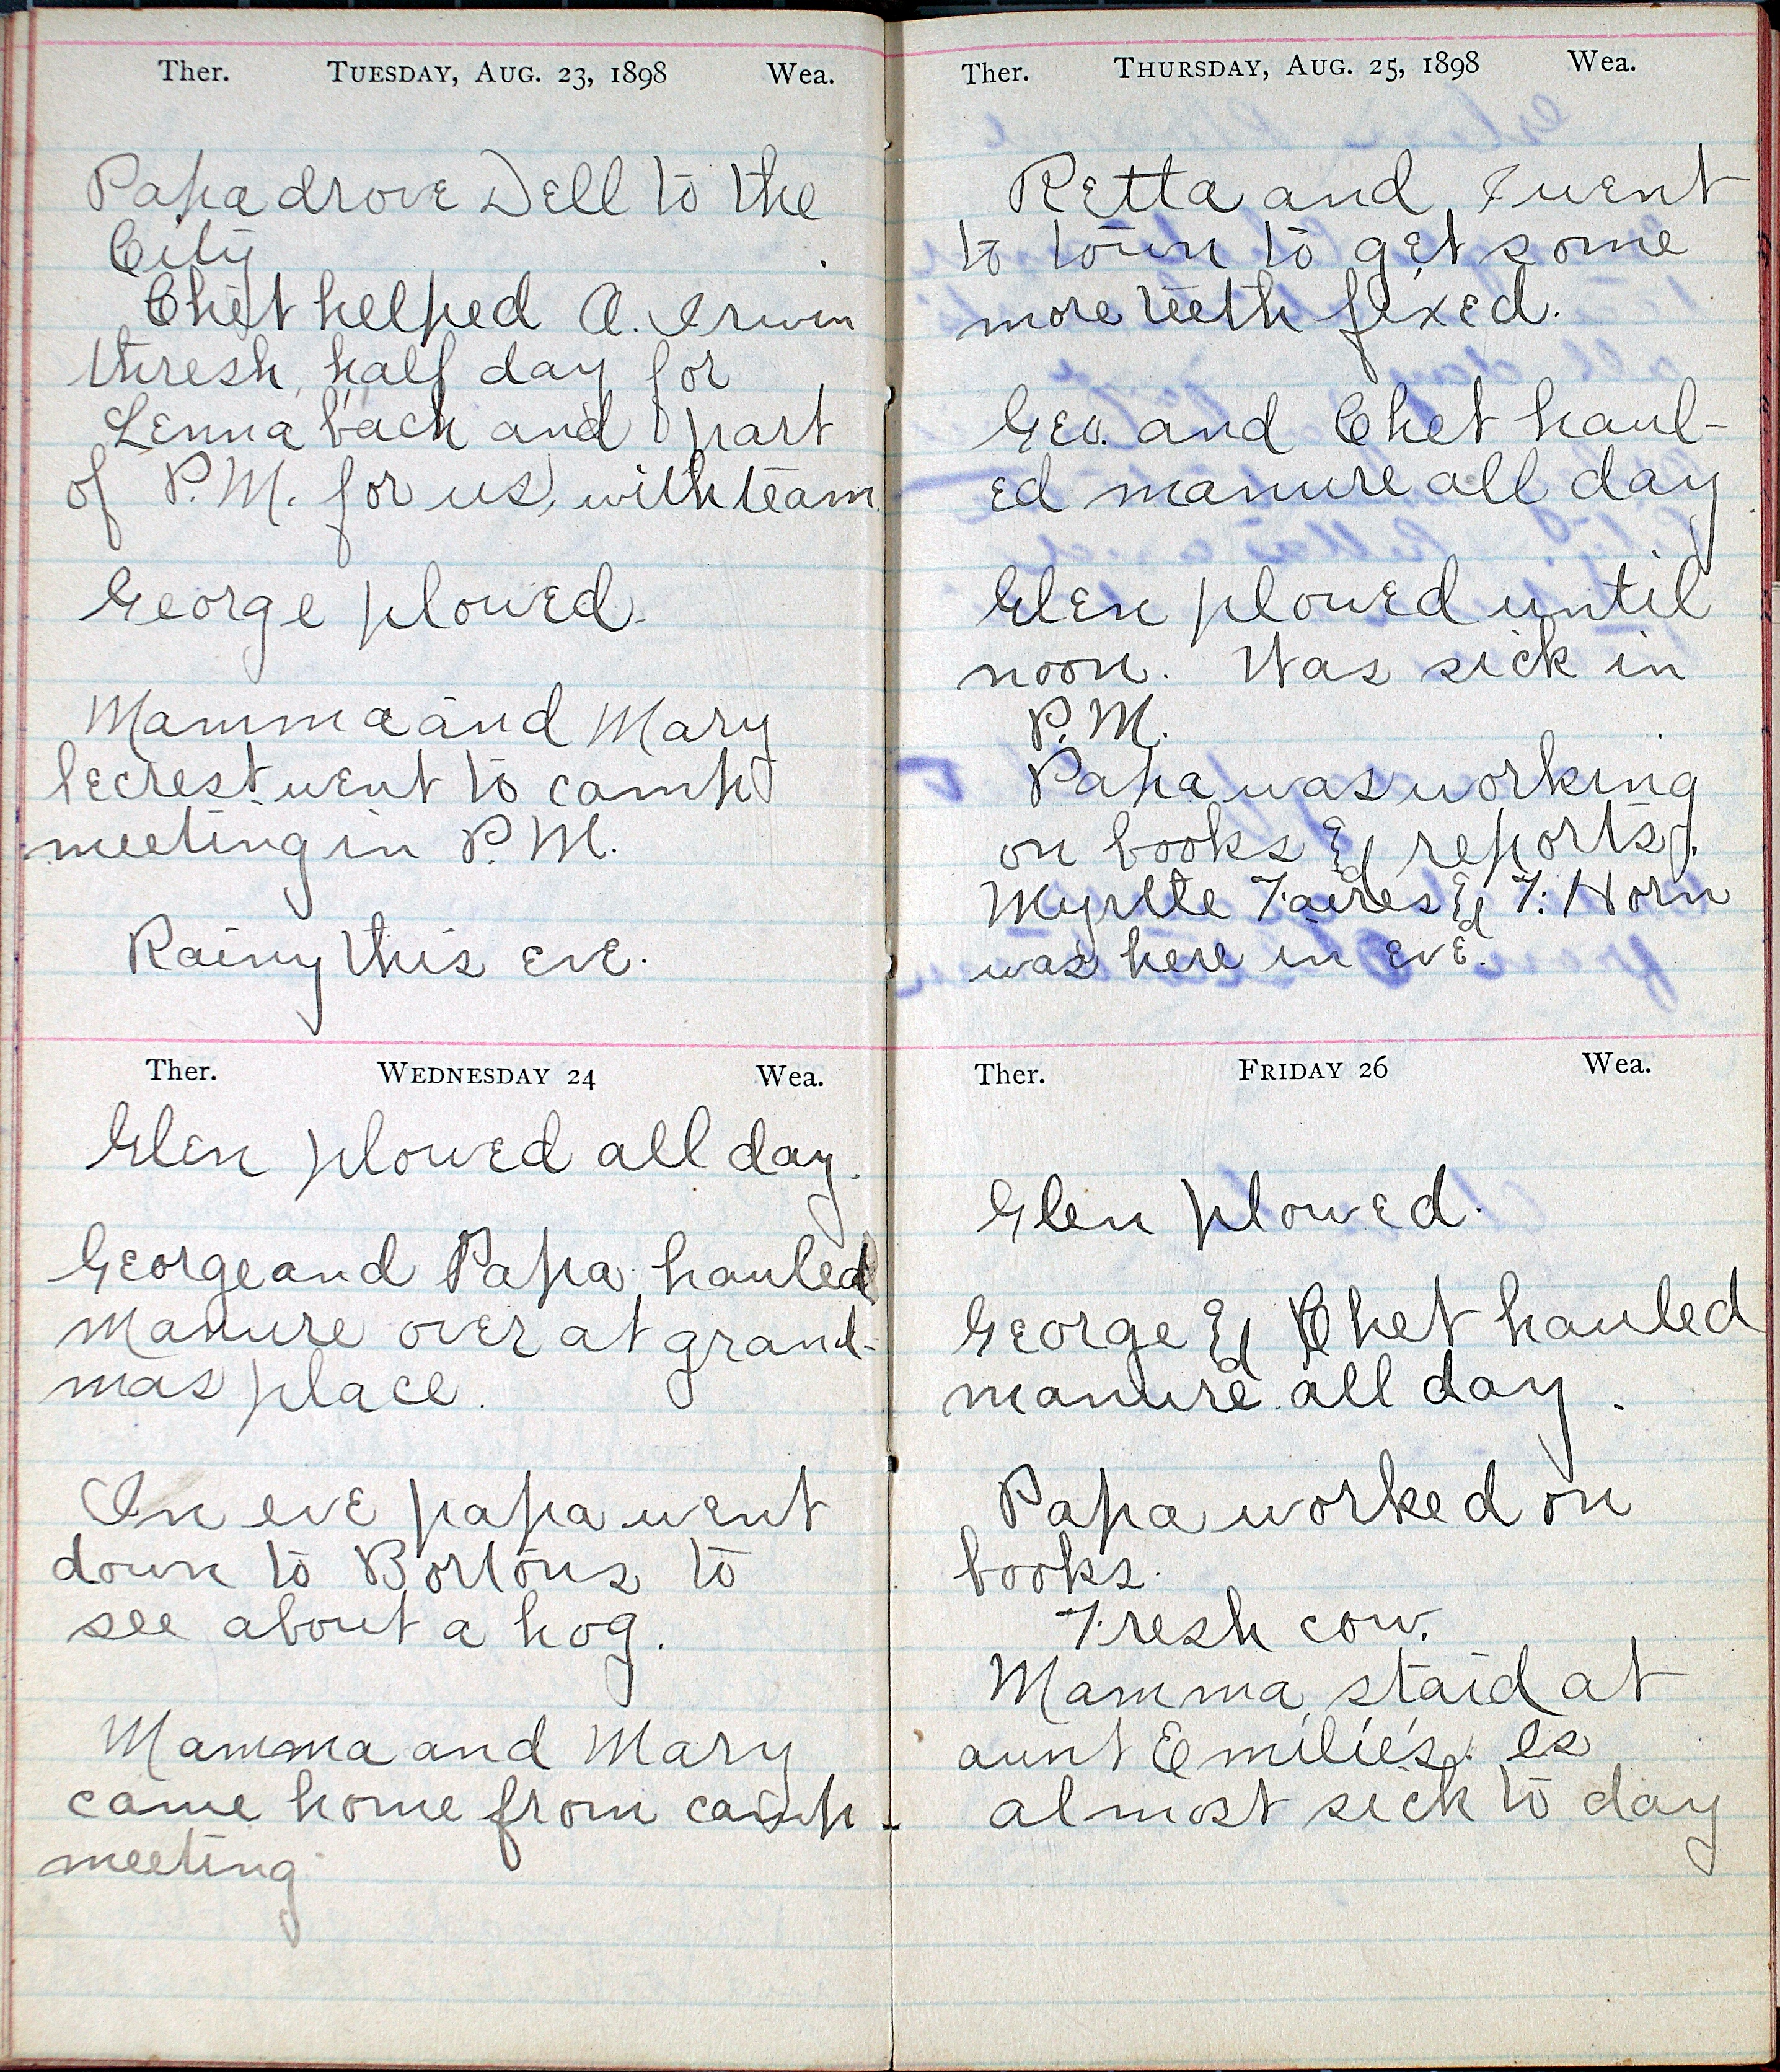 Ther. TUESDAY, AUG. 23, 1898 Wea.
Papa drove Dell to the
City
Chet helped A. Irwin
thresh half day for
Lenna back and part
of P.M. for us, with team.
George plowed.
Mamma and Mary
Secrest went to camp
meeting in P.M.
Rainy this eve.
Ther. WEDNESDAY 24 Wea.
Glen plowed all day.
George and Papa hauled
manure over at grand-
mas place.
In eve papa went
down to Bortons to
see about a hog.
Mamma and Mary
came home from camp -
meeting
Ther. THURSDAY, AUG. 25, 1898 Wea.
Retta and I went
to town to get some
more teeth fixed.
Geo. and Chet haul-
ed manure all day.
Glen plowed until
noon. Was sick in
P.M.
Papa was working
on books & reports.
Myrtte Faires & F. Horn
was here in eve.
Ther. FRIDAY 26 Wea.
Glen plowed.
George & Chet hauled
manure all day.
Papa worked on
books.
Fresh cow.
Mamma staid at
aunt Emilie's. Is
almost sick to day